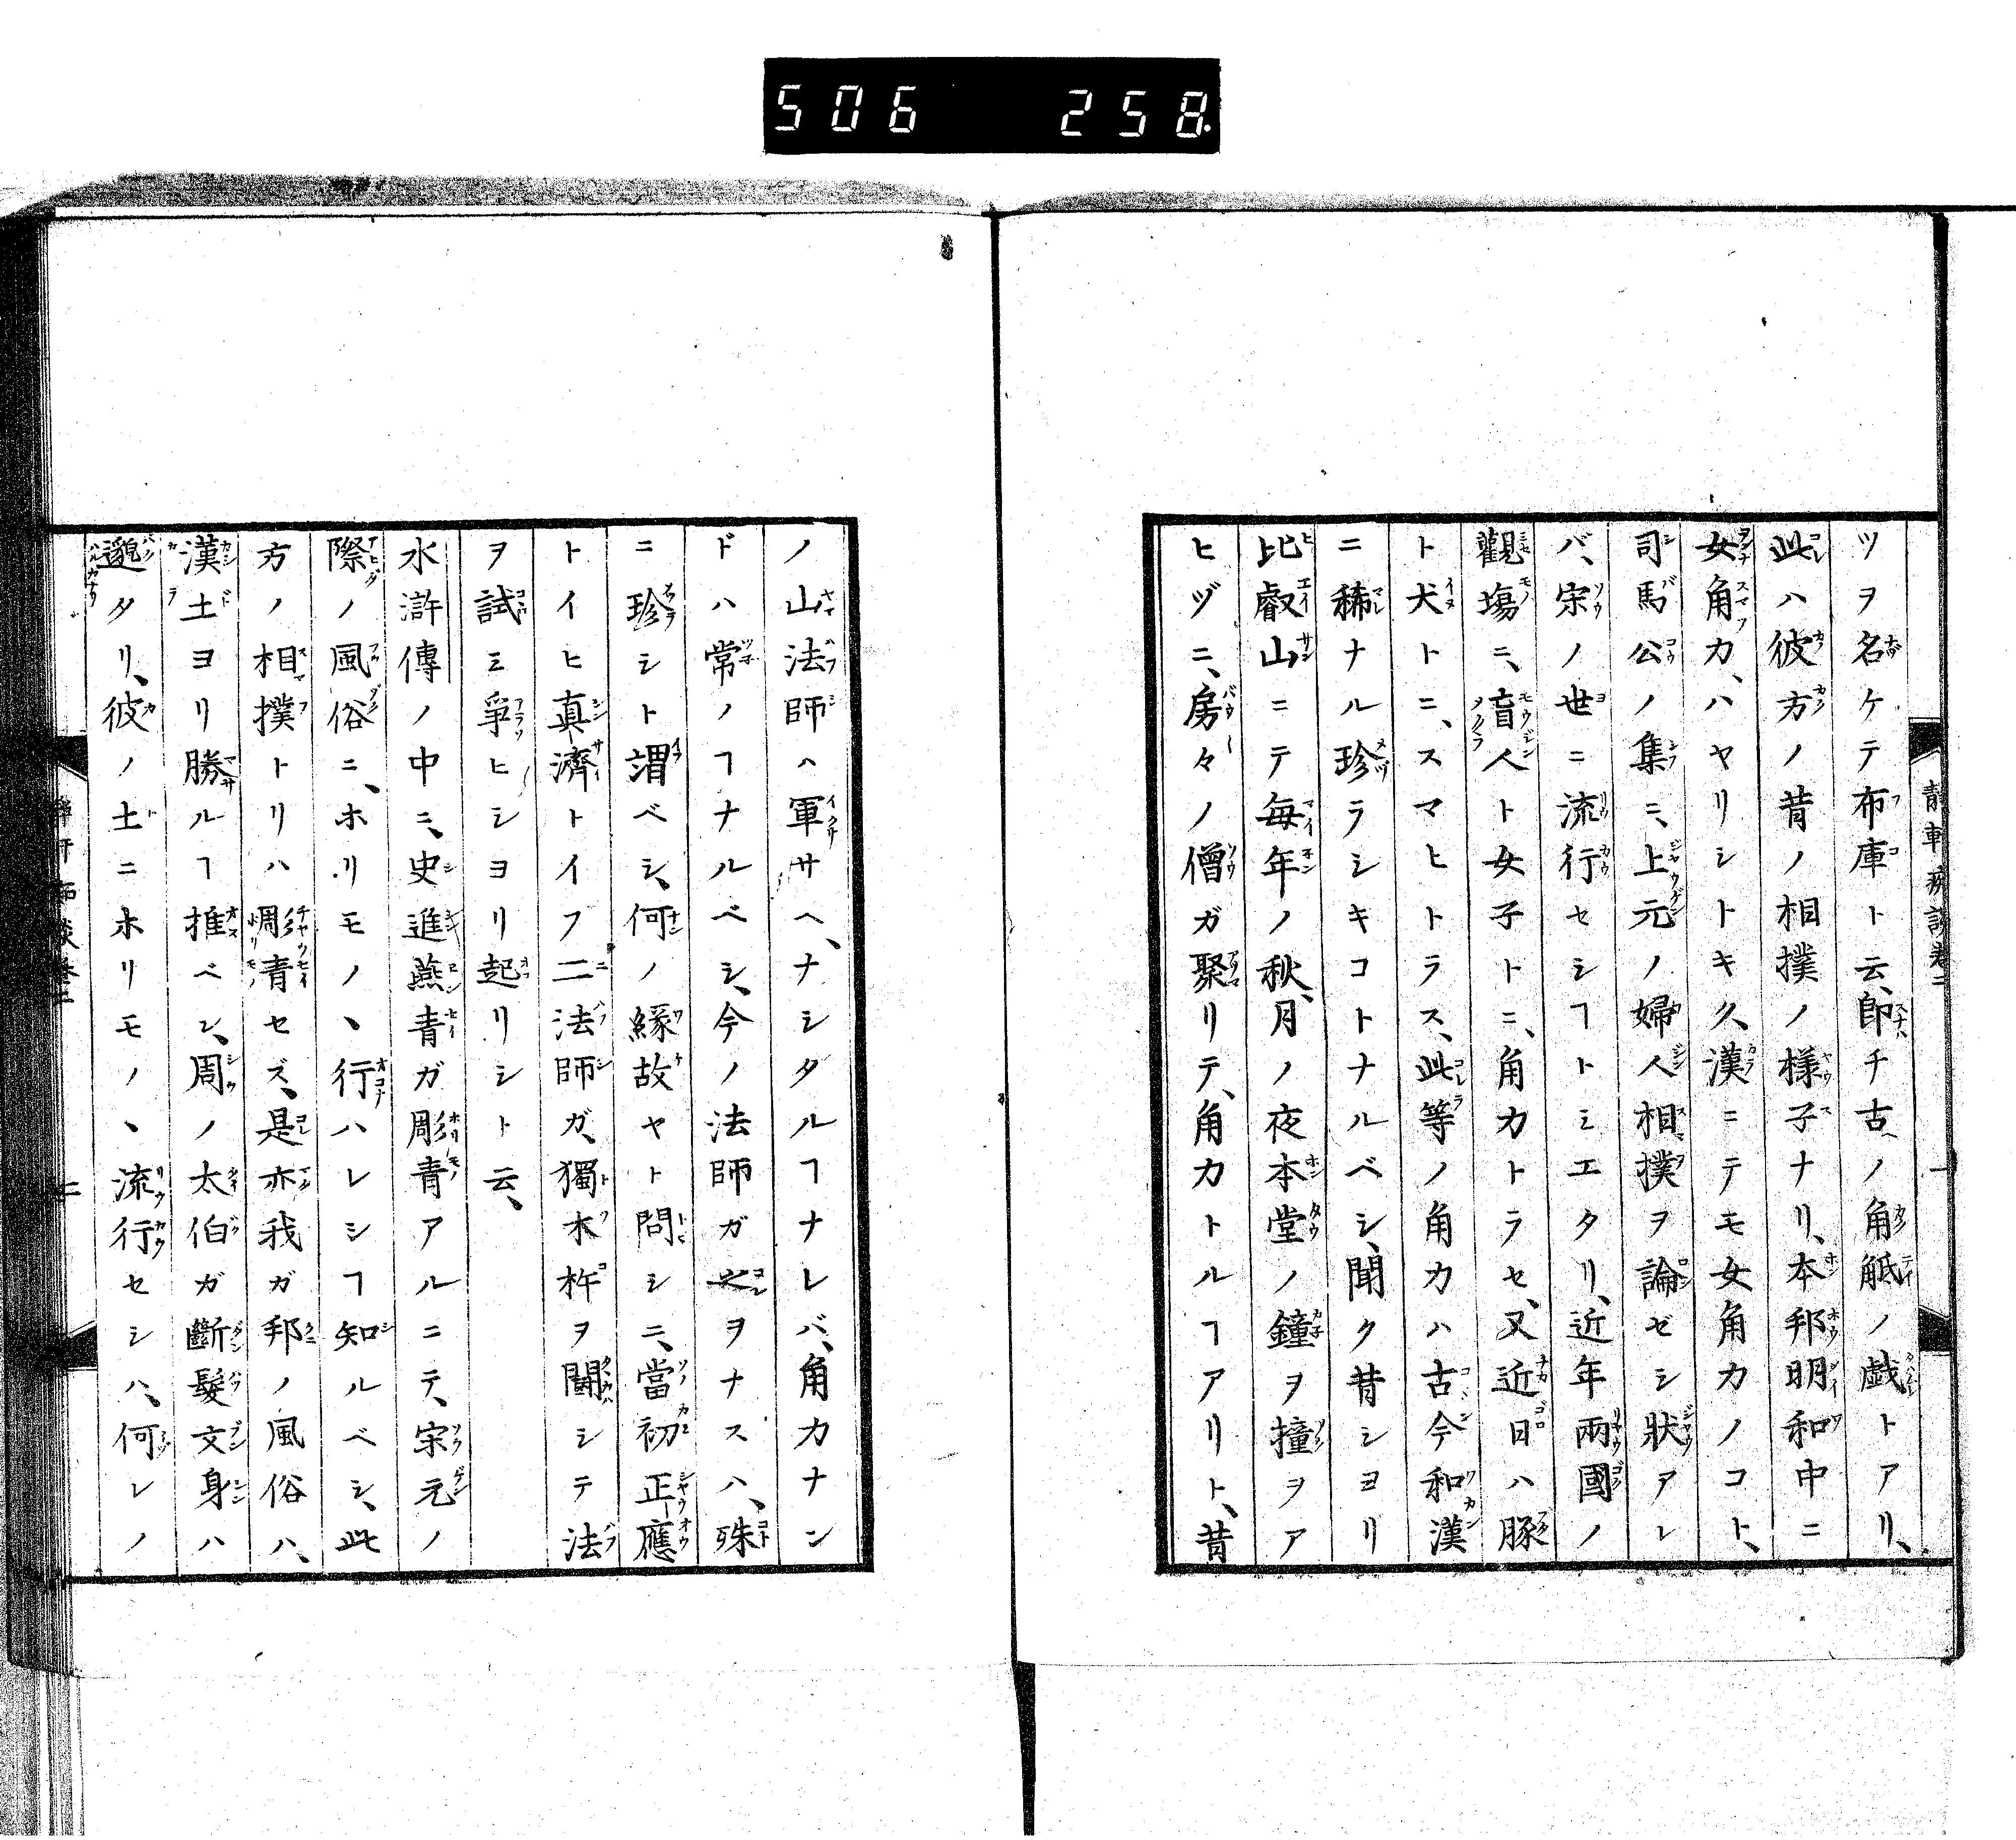 506 258.
ツヲ名ケテ布庫ト云、卽チ古ノ角觝ノ戯トアリ、
此ハ彼方ノ昔ノ相撲ノ様子ナリ、本邦明和中ニ
女角力、ハヤリシトキク、漢ニテモ女角力ノコト、
司馬公ノ集ニ、上元ノ婦人相撲ヲ論ゼシ狀アレ
バ、宋ノ世ニ流行セシヿトミエタリ、近年兩國ノ
觀場ニ、盲人ト女子トニ、角力トラセ、又近日ハ豚
ト犬トニ、スマヒトラス、此等ノ角力ハ古今和漢
ニ稀ナル珍ラシキコトナルベシ、聞ク昔シヨリ
比叡山ニテ毎年ノ秋、月ノ夜本堂ノ鐘ヲ撞ヲア
ヒヅニ、房々ノ僧ガ聚リテ、角力トルヿアリト、昔
ノ山法師ハ軍サヘ、ナシタルヿナレバ、角力ナン
ドハ常ノヿナルベシ、今ノ法師ガ之ヲナスハ、殊
ニ珍シト謂ベシ、何ノ緣故ヤト問シニ、當初正應
トイヒ真濟トイフ二法師ガ、獨木杵ヲ鬪シテ法
ヲ試ミ爭ヒシヨリ起リシト云、
水滸傳ノ中ニ、史進燕青ガ彫青アルニテ、宋元ノ
際ノ風俗ニ、ホリモノヽ行ハレシヿ知ルベシ、此
方ノ相撲トリハ彫青セズ、是亦我ガ邦ノ風俗ハ、
漢土ヨリ勝ルヿ推ベシ、周ノ太伯ガ斷髮文身ハ
邈タリ、彼ノ土ニホリモノヽ流行セシハ、何レノ